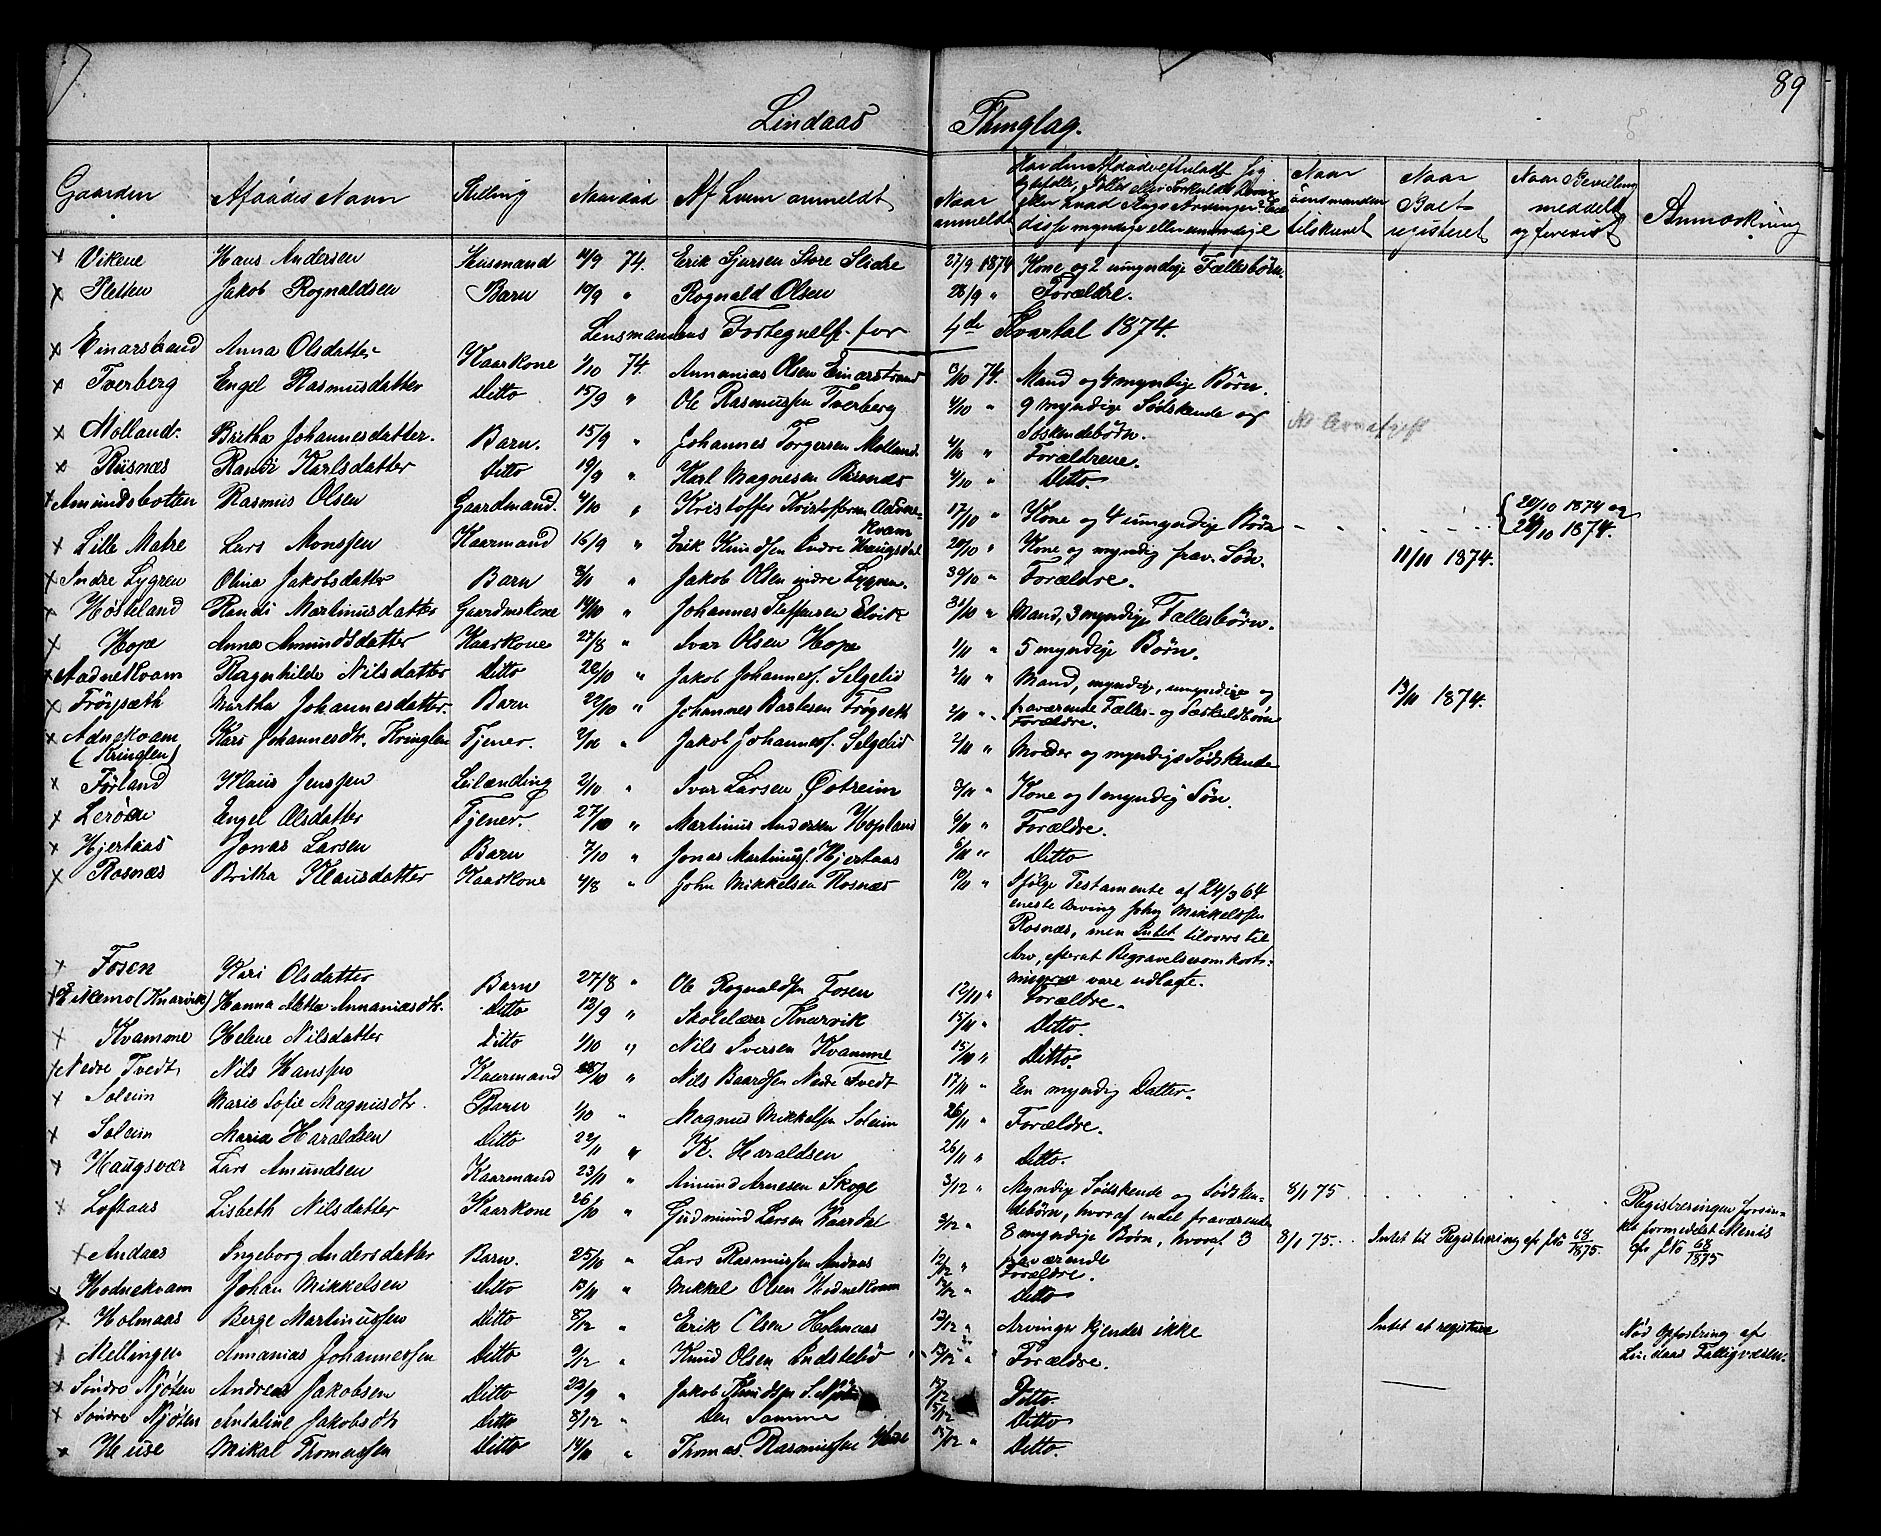 89
Lindaas Thinglag.
Gaarden Afdødes Navn Stilling Naar død Af hvem anmeldt Naar anmeldt Naar Naar Boet registeret Naar Bevilling meddelt og forevist Anmærkning
Vikene Hans Andersen Huusmand 14/9 74. Erik Sjursen Store Slidre 27/9 1874 Kone og 2 umyndige Fællesbørn.
Pletten Jakob Rognaldsen Barn 19/9 " Rognald Olsen 28/9 " Forældre.
Lensmandens Fortegnelse for 4de Kvartal 1874.
Einarstrand Anna Olsdatter Kaarkone 1/10 74. Annanias Olsen Einarstrand 74. Mand og 4 myndige Børn.
Tverberg Engel Rasmusdatter Ditto 15/9 " Ole Rasmussen Tverberg 4/10 " 9 myndige Sødskende og
Søskendebørn.
Molland. Britha Johannesdatter. Barn. 15/9 " Johannes Torgersen Molland 4/10 " Forældrene.
Risnæs Randi Karlsdatter Ditto 19/9 " Karl Magnesen Risnæs 4/10 " Ditto.
Amundsbotten Rasmus Olsen Gaardmand. 4/10 " Kristoffer Kristoffersen Adnekvam 17/10 " Kone og 4 umyndige Børn 1874 og
1874.
Lille Matre Lars Monssen Kaarmand 16/9 " Erik Knudssen Indre Haugsdal 20/10 " Kone og myndig frav. Søn. 11/11 1874.
Indre Lygren Olina Jakobsdatter Barn " Jakob Olsen indre Lygren. 30/10 " Forældre.
Høsteland Randi Martinusdatter Gaardmkone 14/10 " Johannes Steffensen Elvik 31/10 " Mand, 3 myndige Fællesbørn.
Hope Anna Amundsdatter Kaarkone 27/8 " Ivar Olsen Hope 1/11 " 5 myndige Børn.
Aadnekvam Ragnhilde Nilsdatter Ditto 20/10 " Jakob Johanness. Selgelid 2/11 " Mand, myndige, umyndige og
fraværende Fælles- og Særkuldbørn 13/11 1874.
Frøyseth Martha Johannesdatter. Barn 22/10 " Johannes Bartesen Frøyseth 2/11 " Forældre.
Adnekvam Kari Johannesdtr. Kringlen Tjener. " Jakob Johanness. Selgelid 2/11 " Moder og myndige Sødskende
(Kringlen)
Førland Klaus Jenssen Leilænding 2/10 " Ivar Larsen Østreim 3/11 " Kone og 1 myndig Søn.
Lerøen Engel Olsdatter Tjener. 27/10 " Martinus Andersen Hopland " Forældre.
Hjertaas Jonas Larsen Barn 7/10 " Jonas Martinuss. Hjertaas " Ditto
Rosnæs Britha Klausdatter Kaarkone 4/8 " John Mikkelsen Rosnæs 10/11 " Ifølge Testamente af 24/3 64
eneste Arving John Mikkelssen
Rosnæs, men Intet tilovers til
Arv, efterat Begravelsesomkost-
ningerne vare udlagte.
Fosen Kari Olsdatter Barn 27/8 " Ole Rognaldsen Fosen 12/11 " Forældre.
Eikemo (Knarvik) Hanna Metta Annaniasdtr. Ditto 12/9 " Skolelærer Knarvik 15/11 " Ditto.
Kvamme Helene Nilsdatter Ditto 1/10 " Nils Iversen Kvamme " Ditto.
Nedre Tvedt Nils Hanssen Kaarmand " Nils Baardsen Nedre Tvedt 17/11 " En myndig Datter.
Soleim Marie Sofie Magnusdtr. Barn 1/10 " Magnus Mikkelsen Soleim 26/11 " Forældre.
Soleim Maria Haraldsen Ditto 22/11 " K. Haraldsen 26/11 " Ditto.
Haugsvær Lars Amundsen Kaarmand 23/11 " Amund Arnesen Skoge 3/12 " Myndige Sødskende og Sødsken-
debørn, hvoraf endel fraværende 8/1 75.
Loftaas Lisbeth Nilsdatter Kaarkone 26/10 " Gudmund Larsen Kaardal 3/12 " 8 myndige Børn, hvoraf 3
fraværende 8/1 75. Intet til Registrering efr. JNo 68/1875. Registreringen forsin-
ket formedelst Menis
Cfr JNo 68/1875
Andaas Ingeborg Andersdatter Barn. 25/10 " Lars Rasmussen Andaas 12/12 " Forældre.
Hodnekvam Johan Mikkelsen Ditto 13/11 " Mikkel Olsen Hodnekvam 12/12 " Ditto
Holmaas Berge Martinussen Ditto 8/12 " Erik Olsen Holmaas 13/12 " Arvinger kjendes ikke Intet at registrere Nød Opfostring af
Lindaas Fattigvæsen.
Mellingen Annanias Johannessen Ditto 9/12 " Knud Olsen Indstelid 13/12 " Forældre.
Søndre Njøten Andreas Jakobsen Ditto 23/9 " Jakob Knudsen S. Njøten 15/12 Ditto.
Søndre Njøten Antaline Jakobsdtr Ditto 8/12 " Den Samme 15/12 Ditto
Huse Mikal Thomassen Ditto 14/11 " Thomas Rasmussen Huse 15/12 " Ditto.